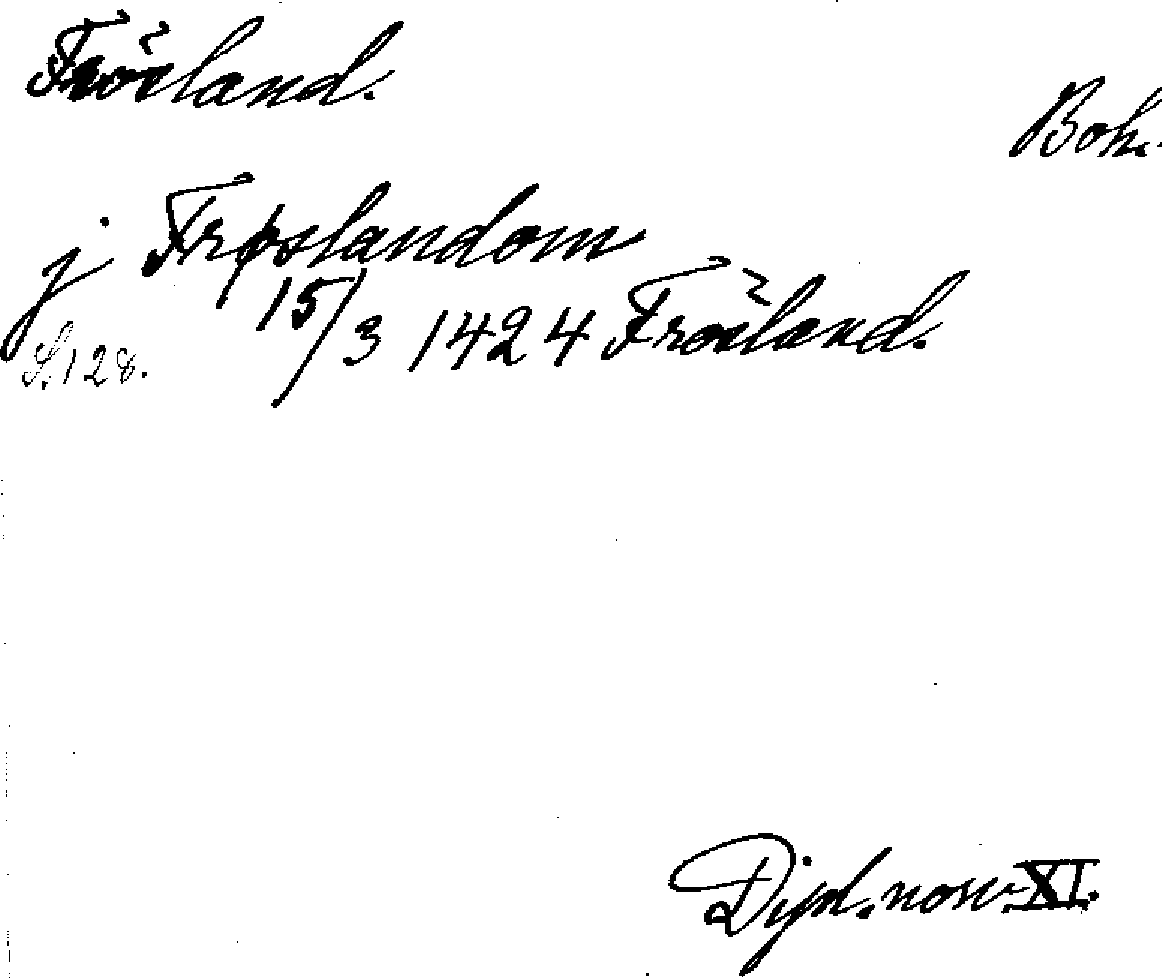 Frösland.
Boh.
j Frøslandom
15/3 1424 Frösland.
S. 128.
Dipl. norv. XI.